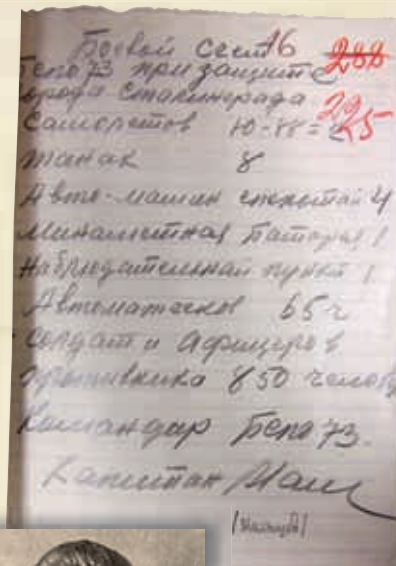 Боевой счет 16
Бепо 73 при защите
города Сталинграда
Самолетов Ю-88=2
танак 8
Авто-машин с пехотой 4
Минаметная батарея 1
Наблюдательнай пункт 1
Автоматчеков 65 ч
Солдат и Афицеров
протывника 850 челов
Командир Бепо 73.
Капитан